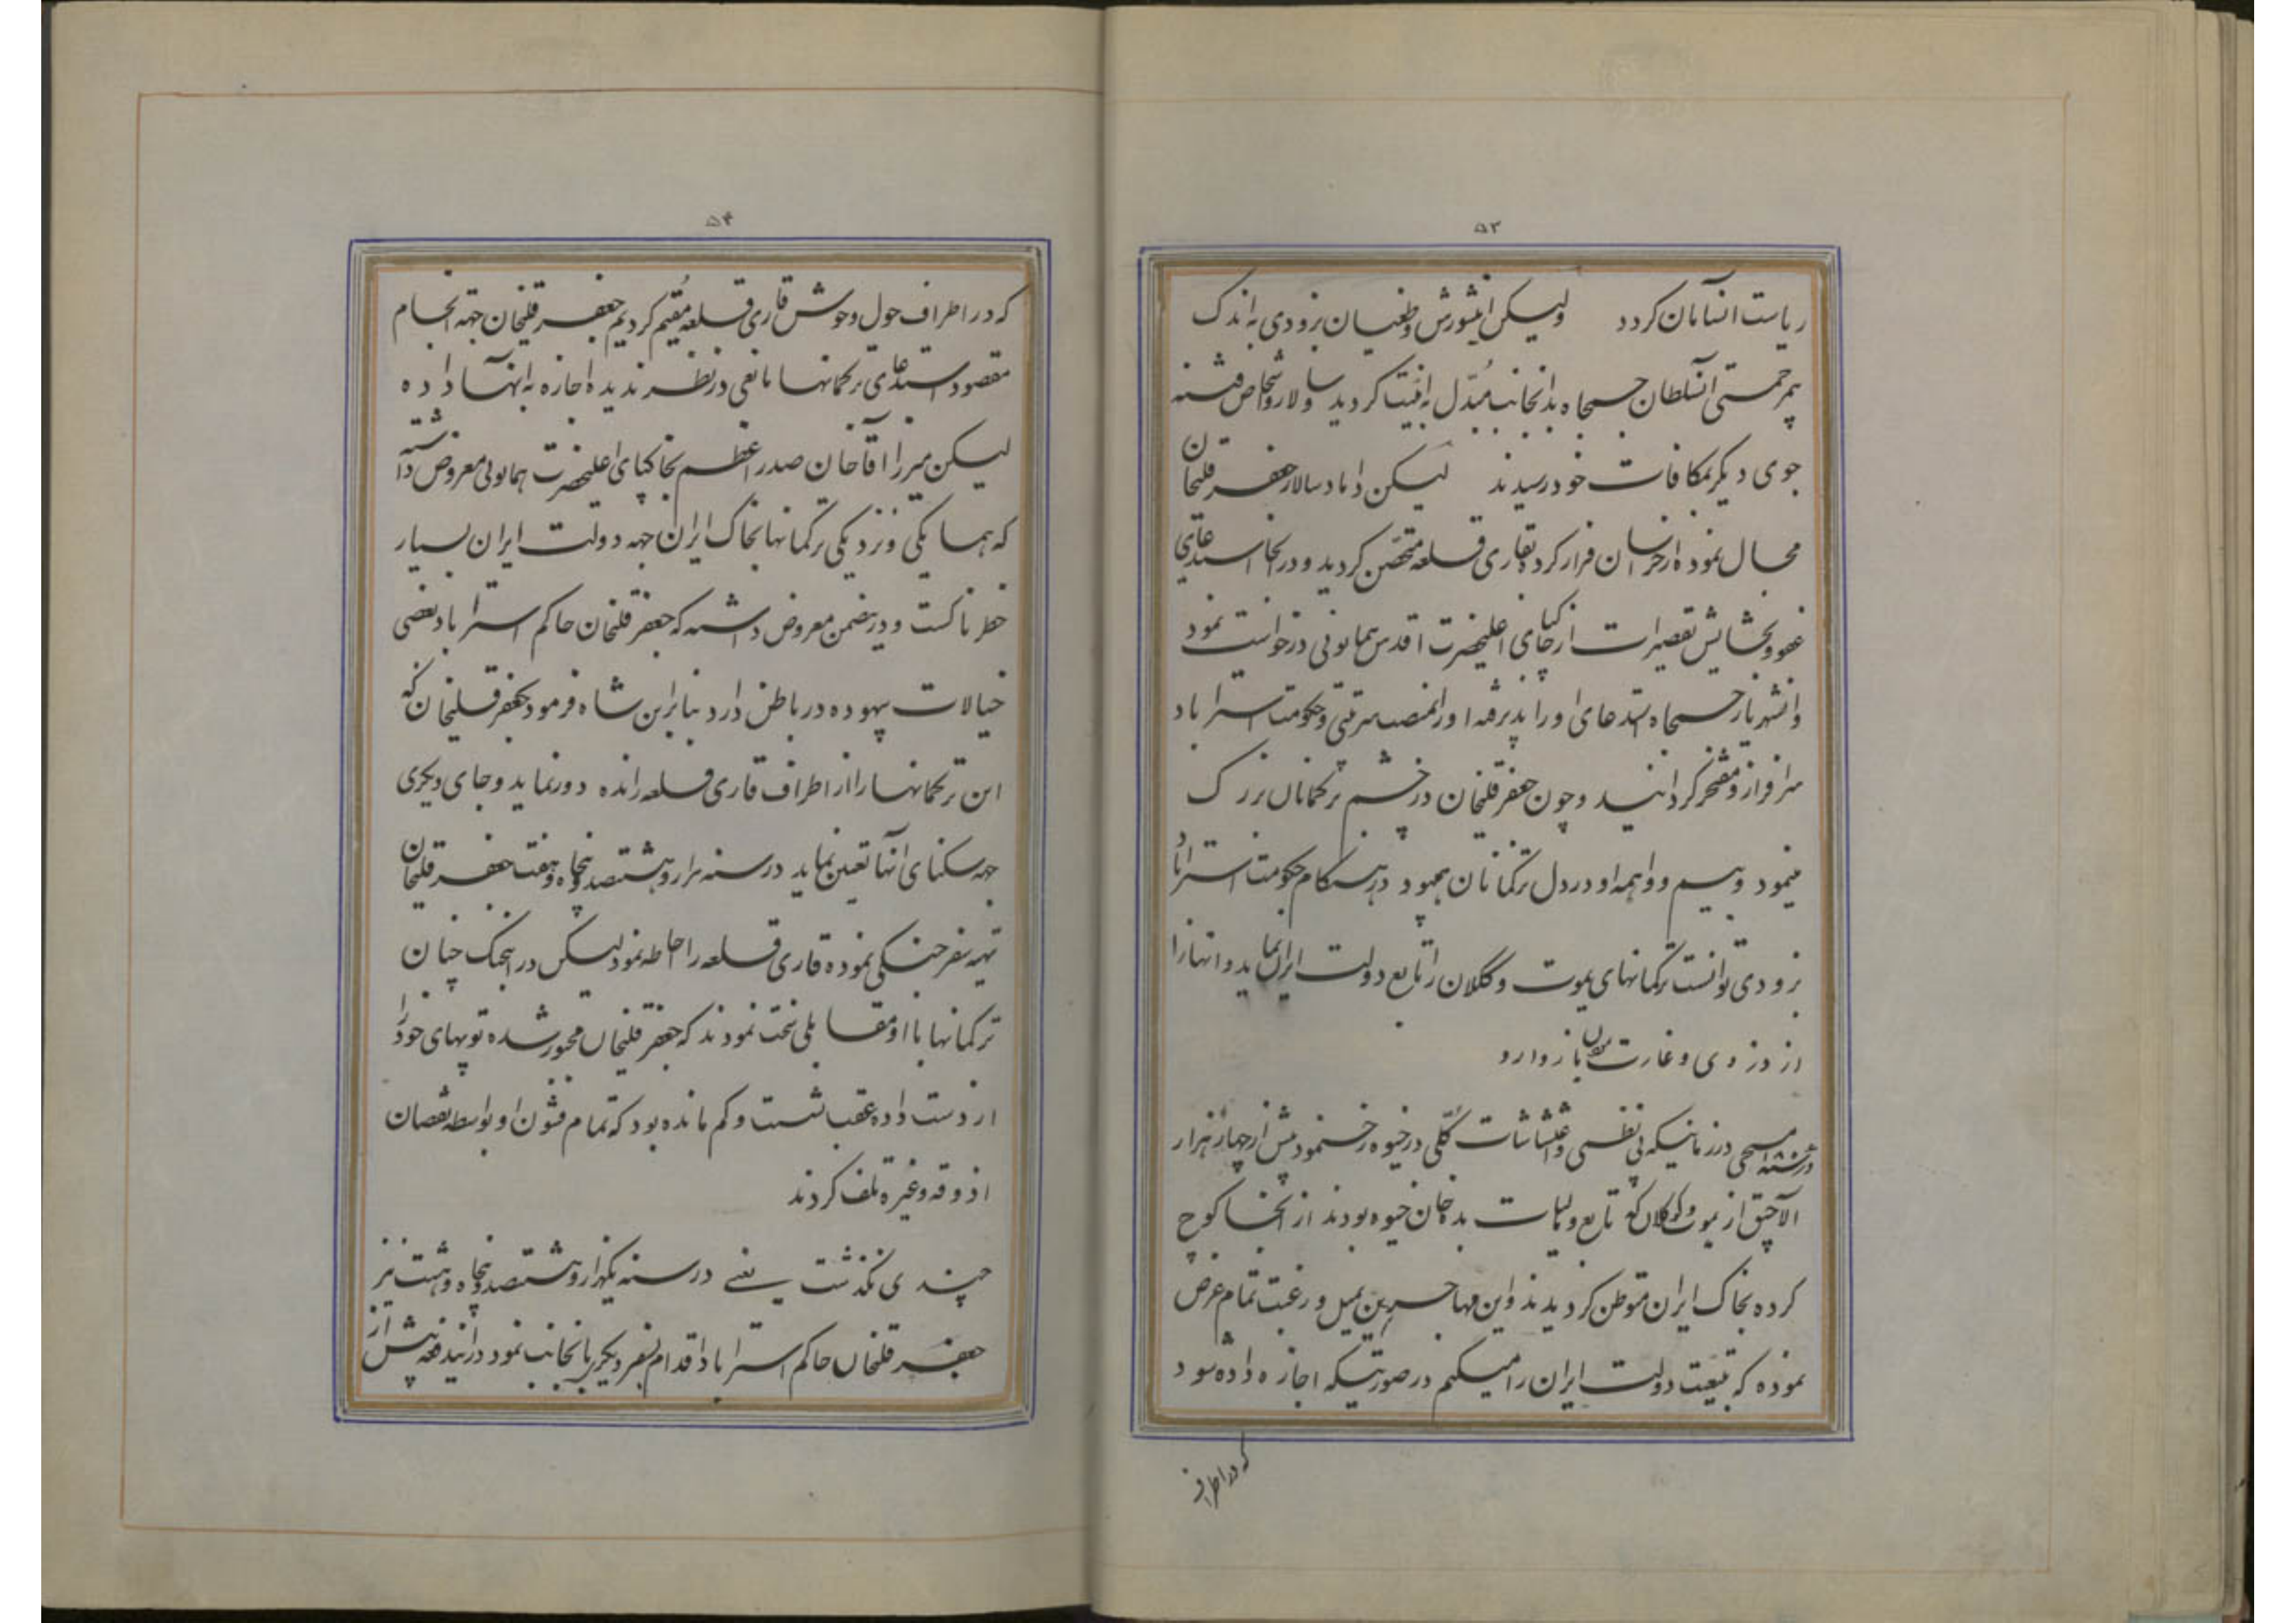 ۵۳
ریاست انسامان کردد ولیکن اینشورش و طغیان بزودی به اندک
مرحمتی آنسلطان جمجاه بدانجانب مبدل به امنیت کردید و سالار و اشخاص فتنه
جوی دیگر بمکافات خود رسیدند لیکن داماد سالار جعفر قلیخان
مجال نموده از خراسان فرار کرده بقاری قلعه متحصن کردید و در آنجا استدعای
عفو و بخشایش تقصیرات از خاکپای اعلیحضرت اقدس همایونی درخواست نمود
و انشهریار جمجاه استدعای او را پذیرفته او را بمنصب سرتیپی و حکومت استراباد
سرافراز و مفتخر کردانید و چون جعفر قلیخان در چشم ترکمانان بزرک
مینمود و بیم و واهمه او در دل ترکمانان بود در هنکام حکومت استراباد
بزودی توانست ترکمانهای یموت و کگلان را تابع دولت ایران نماید و انها را
از دزدی و غارت بازدارد
در سنه مسیحی در زمانیکه بی نظمی و اغتشاشات کلی در خیوه رخ نمود بیش از چهار هزار
الاچیق از یموت و کوکلان که تابع ولایات بد خان خیوه بودند از آنجا کوچ
کرده بخاک ایران متوطن کردیدند و این مهاجرین بمیل و رغبت تمام عرض
نموده که تبعیت دولت ایران را میکنیم در صورتیکه اجازه داده شود
که در اطراف
۵۴
که در اطراف حول و حوش قاری قلعه مقیم کردیم جعفر قلیخان جهه انجام
مقصود استدعای ترکمانها مانعی در نظر ندیده اجازه به انها داده
لیکن میرزا آقاخان صدر اعظم بخاکپای اعلیحضرت همایونی معروض داشته
که همسایکی و نزدیکی ترکمانها بخاک ایران جهه دولت ایران بسیار
خطرناکست و در ضمن معروض داشته که جعفر قلیخان حاکم استراباد بعضی
خیالات بیهوده در باطن دارد بنابراین شاه فرمود جعفر قلیخان که
این ترکمانها را از اطراف قاری قلعه رانده دور نماید و جای دیکری
جهه سکنای آنها تعین نماید در سنه هزار و هشتصد و پنجاه و هفت جعفر قلیخان
تهیه سفر جنکی نموده قاری قلعه را احاطه نمود لیکن در اینجنک چنان
ترکمانها با او مقابلی سخت نمودند که جعفر قلیخان مجبور شده توپهای خود را
از دست داده عقب نشست و کم مانده بود که تمام قشون او بواسطه نقصان
اذوقه و غیره تلف کردند
چندی نکذشت یعنی در سنه یکهزار و هشتصد و پنجاه و هشت نیز
جعفر قلیخان حاکم استراباد اقدام بسفر دیکری بانجانب نمود در ایندفعه بیش از